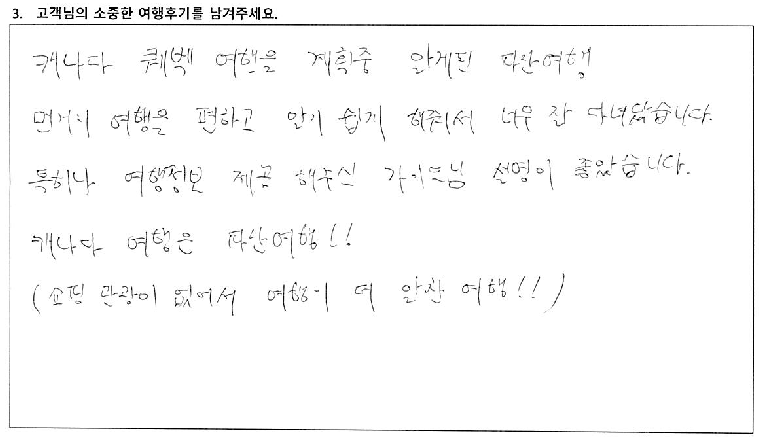 3. 고객님의 소중한 여행후기를 남겨주세요.
캐나다 퀘벡 여행을 계획중 알게된 파란여행
먼거리 여행을 편하고 알기 쉽게 해줘서 너무 잘 다녀왔습니다.
특히나 여행정보 제공 해주신 가이드님 설명이 좋았습니다.
캐나다 여행은 파란여행!!
(쇼핑 관광이 없어서 여행이 더 알찬 여행!!)